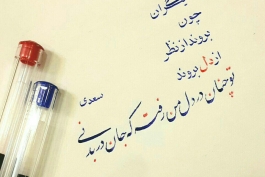 دیگران
چون
بروند از نظر
از دل بروند
تو چنان در دل من رفته که جان در بدنی
سعدی